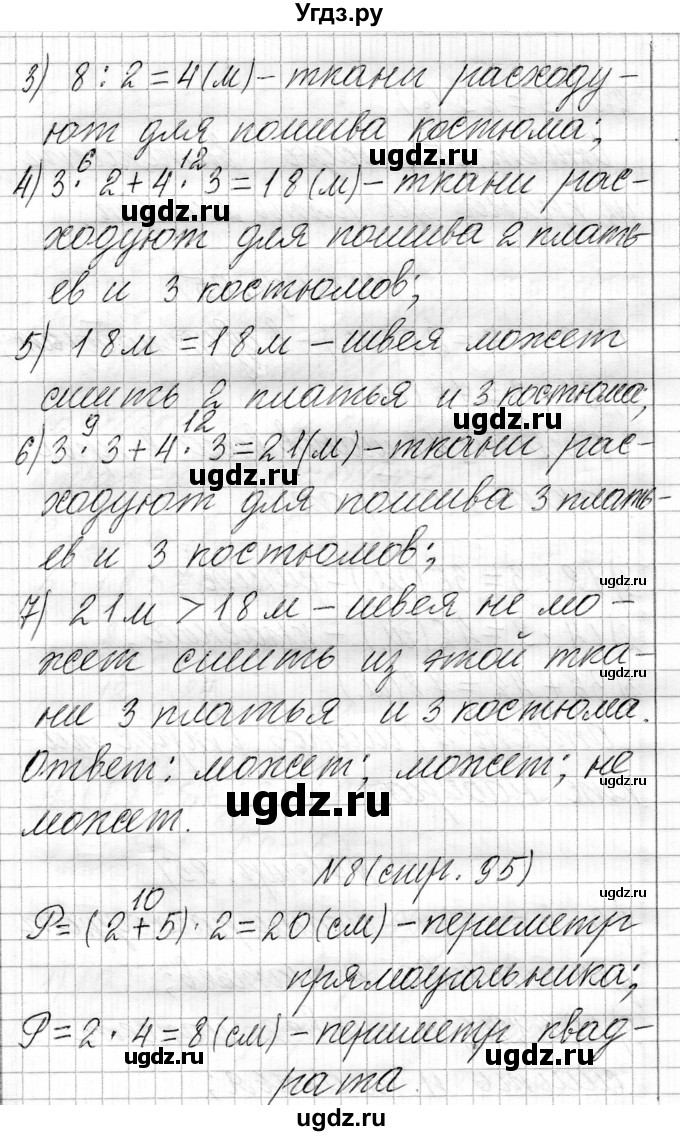 Угдз.ру
3) 8 : 2 = 4 (м) – ткани расходу–
ют для пошива костюма;
ugdz.ru
6 12
4) 3 · 2 + 4 · 3 = 18 (м) – ткани рас–
ugdz.ru
ходуют для пошива 2 плать–
ев и 3 костюмов;
5) 18 м = 18 м – швея может
сшить 2 платья и 3 костюма;
ugdz.ru
9 12
6) 3 · 3 + 4 · 3 = 21 (м) – ткани рас–
ugdz.ru
ходуют для пошива 3 плать–
ев и 3 костюмов;
ugdz.ru
7) 21 м > 18 м – швея не мо–
жет сшить из этой тка–
ни 3 платья и 3 костюма.
Ответ: может; может; не
ugdz.ru
ugdz.ru
может.
N8 (стр. 95)
ugdz.ru
10
P = (2 + 5) · 2 = 20 (см) – периметр
прямоугольника;
P = 2 · 4 = 8 (см) – периметр квад–
ugdz.ru
ugdz.ru
рата.
ugdz.ru